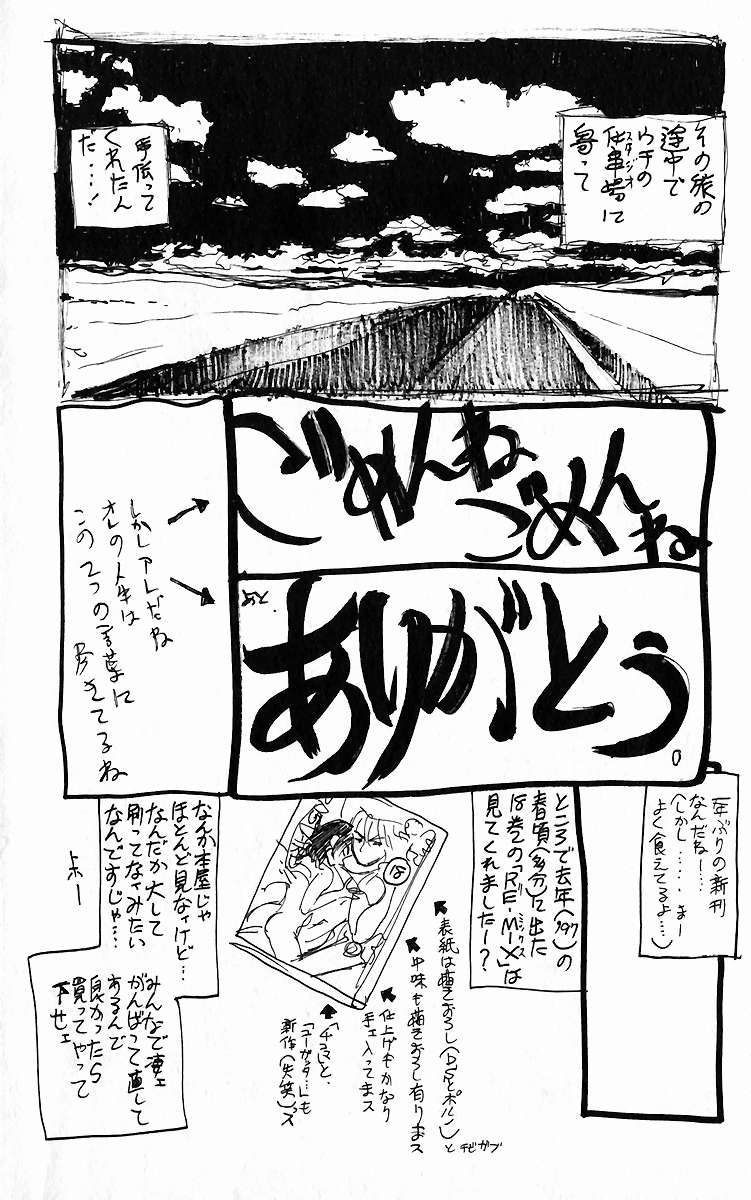 その旅の
途中で
ウチの
仕事場に
スタジオ
寄って
手伝って
くれたん
だ…!
ごめんね
ごめんね
ありがとう
しかしアレだね
オレの人生は
この2つの言葉に
尽きてるね
1年ぶりの新刊
なんだねー…
(しかし……まー
よく食えてるよ…)
ところで去年('97)の
春頃(多分)に出た
18巻の「RE-MIX」は
ミックス
見てくれましたー?
18
表紙は描きおろし(D.S.とポルノ)と
チビガブ
中味も描きおろし有りまス
仕上げもかなり
手ェ入ってまス
新作(失笑)ズ
なんか本屋じゃ
ほとんど見ないけど…
なんだか大して
刷ってないみたい
なんですじゃ…
みんなで凄ェ
がんばって直して
あるんで
良かったら
買ってやって
下せェ